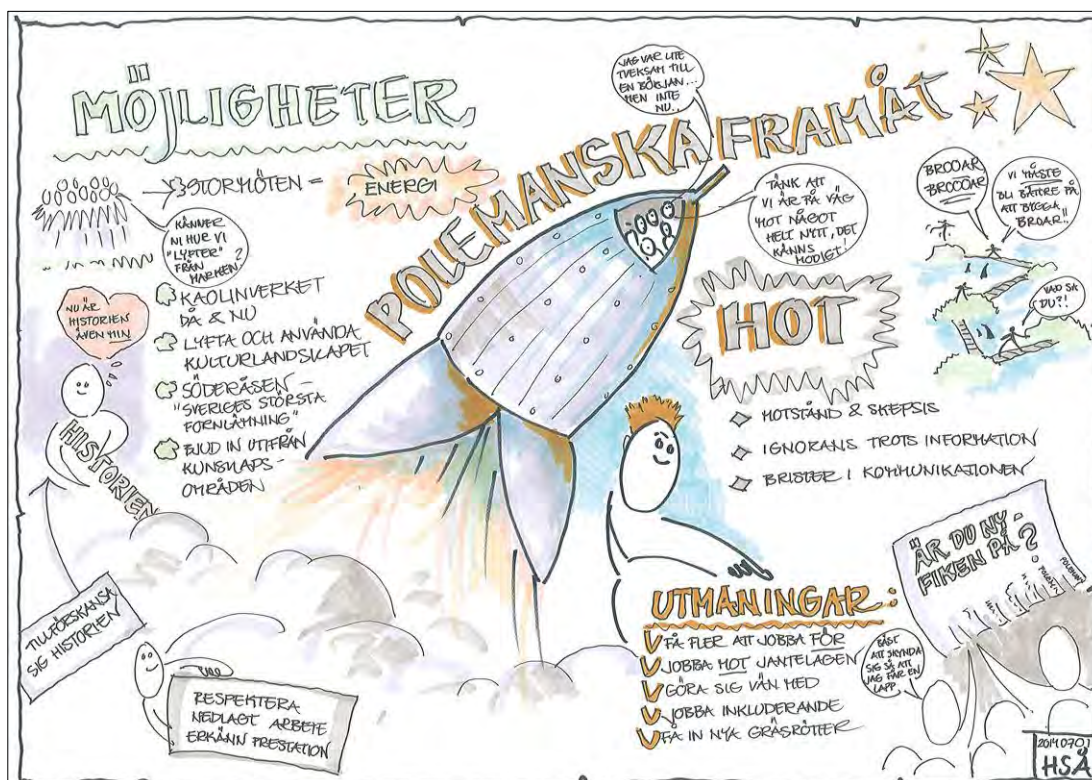 MÖJLIGHETER
STORMÖTEN =
ENERGI
KÄNNER
NI HUR VI
"LYFTER"
FRÅN
MARKEN?
NU ÄR
HISTORIEN
ÄVEN MIN
HISTORIEN
KAOLINVERKET
DÅ & NU
LYFTA OCH ANVÄNDA
KULTURLANDSKAPET
SÖDERÅSEN –
"SVERIGES STÖRSTA
FORNLÄMNING"
BJUD IN UTIFRÅN
KUNSKAPS-
OMRÅDEN
TILLFÖRSKANSA
SIG HISTORIEN
RESPEKTERA
NEDLAGT ARBETE
ERKÄNN PRESTATION
POLEMANSKA FRAMÅT
JAG VAR LITE
TVEKSAM TILL
EN BÖRJAN...
MEN INTE
NU...
TÄNK ATT
VI ÄR PÅ VÄG
MOT NÅGOT
HELT NYTT, DET
KÄNNS
MODIGT!
BROOAR
BROOOAR
VI MÅSTE
BLI BÄTTRE PÅ
ATT BYGGA
BROAR!!
VAD SA
DU?!
HOT
MOTSTÅND & SKEPSIS
IGNORANS TROTS INFORMATION
BRISTER I KOMMUNIKATIONEN
UTMANINGAR:
FÅ FLER ATT JOBBA FÖR
JOBBA MOT JANTELAGEN
GÖRA SIG VÄN MED
JOBBA INKLUDERANDE
FÅ IN NYA GRÄSRÖTTER
ÄR DU NY-
FIKEN PÅ?
BÄST
ATT SKYNDA
SIG SÅ ATT
JAG FÅR EN
LAPP
20140701
HSÅ